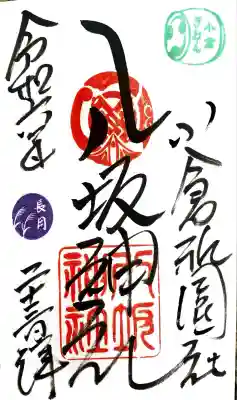 小倉
ぎおん
小倉祇園社
八坂神社
八坂神社
令和六年
長月
二十三日拝